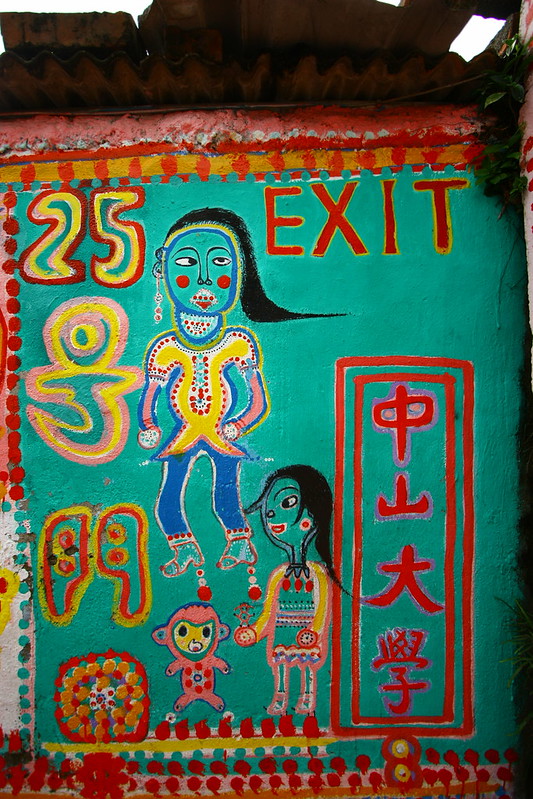 25
号
門
EXIT
中山大學
8